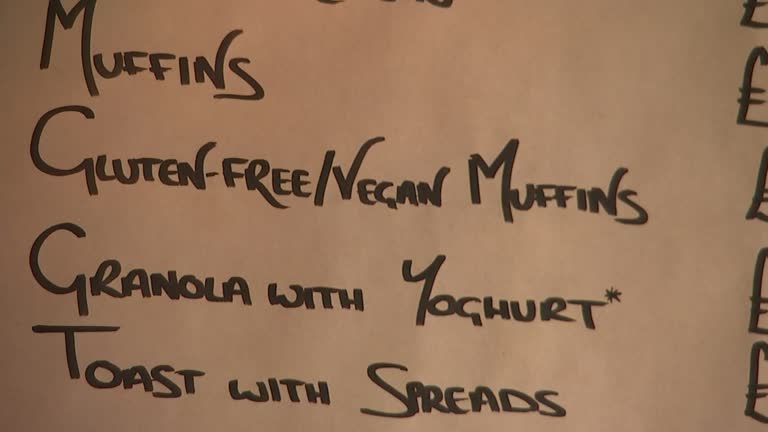 Muffins £
Gluten-Free/Vegan Muffins £
Granola with Yoghurt* £
Toast with Spreads £